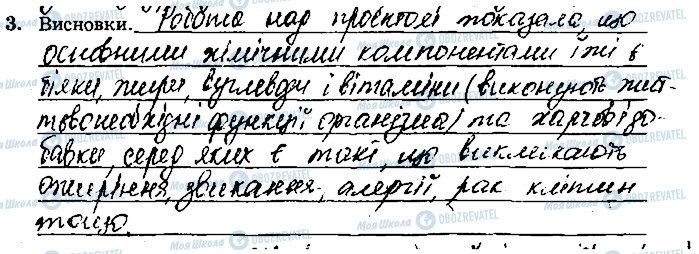 3. Висновки. Робота над проєктом показала, що
основними хімічними компонентами їжі є
білки, жири, вуглеводи і вітаміни (виконують жит-
тєвонеобхідні функції організма) та харчові до-
бавки, серед яких є такі, що викликають
ожиріння, звикання, алергії, рак клітин
тощо.